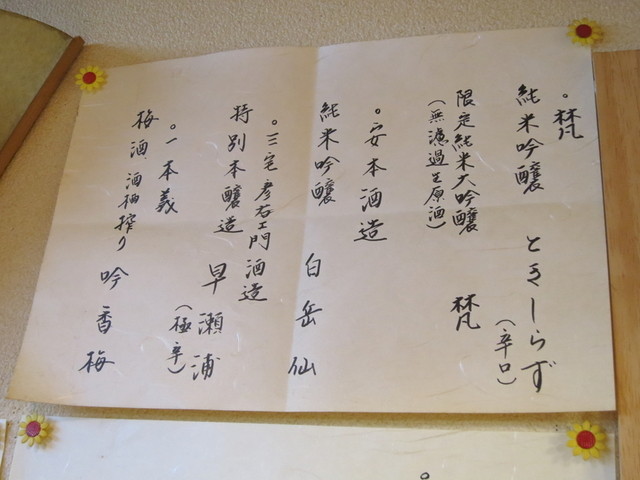 。梵
純米吟醸 ときしらず
(辛口)
限定純米大吟醸 梵
(無濾過生原酒)
。安本酒造
純米吟醸 白岳仙
。三宅彦右エ門酒造
特別本醸造 早瀬浦
(極辛)
。一本義
梅酒 酒粕搾り 吟香梅